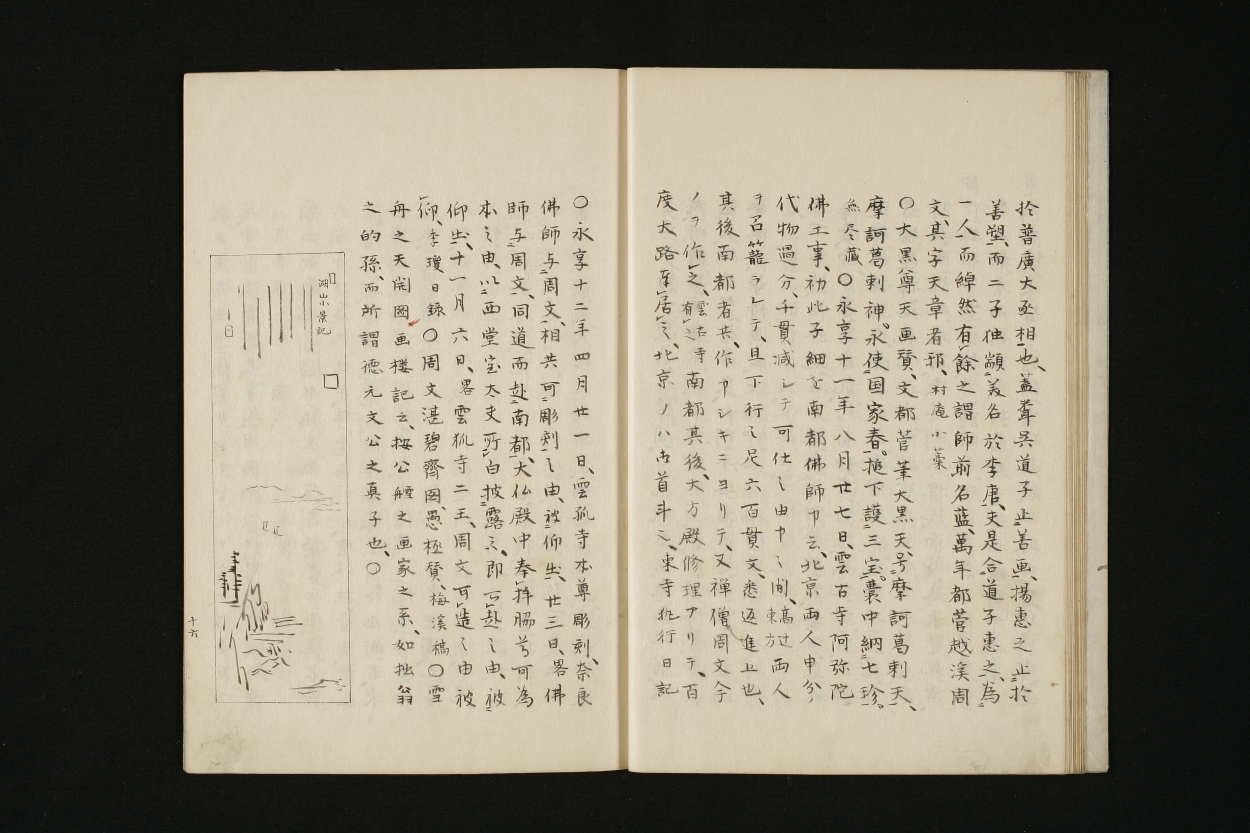 於普廣大丞相也、蓋聱呉道子止善画、揚惠之止於
善塑、而二子独顓美名於李唐、夫是合道子惠之、為
一人而綽然有餘之謂師前名藍、萬年都菅越溪周
文、其字天章者邪、村庵小藁
〇大黒尊天画賛、文都菅筆大黒天、号摩訶葛剌天、
摩訶葛剌神。永使国家春、搥下護三宝。嚢中納七珍。
無尽蔵〇永享十一年八月廿七日、雲古寺阿弥陀
佛工事、初此子細を南都佛師申云、北京両人申分、
代物過分、千貫減シテ可仕之由申之間、東方両人
ヲ召籠ラレテ、且下行之足六百貫文、悉返進上也、
其後南都者共、作申シキニヨリテ、又禅僧周文今
ノヲ作之、雲古寺南都有之其後、大方殿修理アリテ、百
度大路耳居之、北京ノハ古首斗之、東寺執行日記
〇永享十二年四月廿一日、雲孤寺本尊彫刻、奈良
佛師与周文、相共可彫刻之由、被仰出、廿三日、畧佛
師与周文、同道而赴南都、大仏殿中奉拝脇号可為
本之由、以西堂宝太夫所白披露之、即可赴之由、被
仰出、十一月六日、畧雲孤寺二王、周文可造之由被
仰、季瓊日録〇周文湛碧齊図、愚極賛、梅溪稿〇雪
舟之天開図画楼記云、按公軆之画家之系、如拙翁
之的孫、而所謂德元文公之真子也、〇
湖山小景記
十六